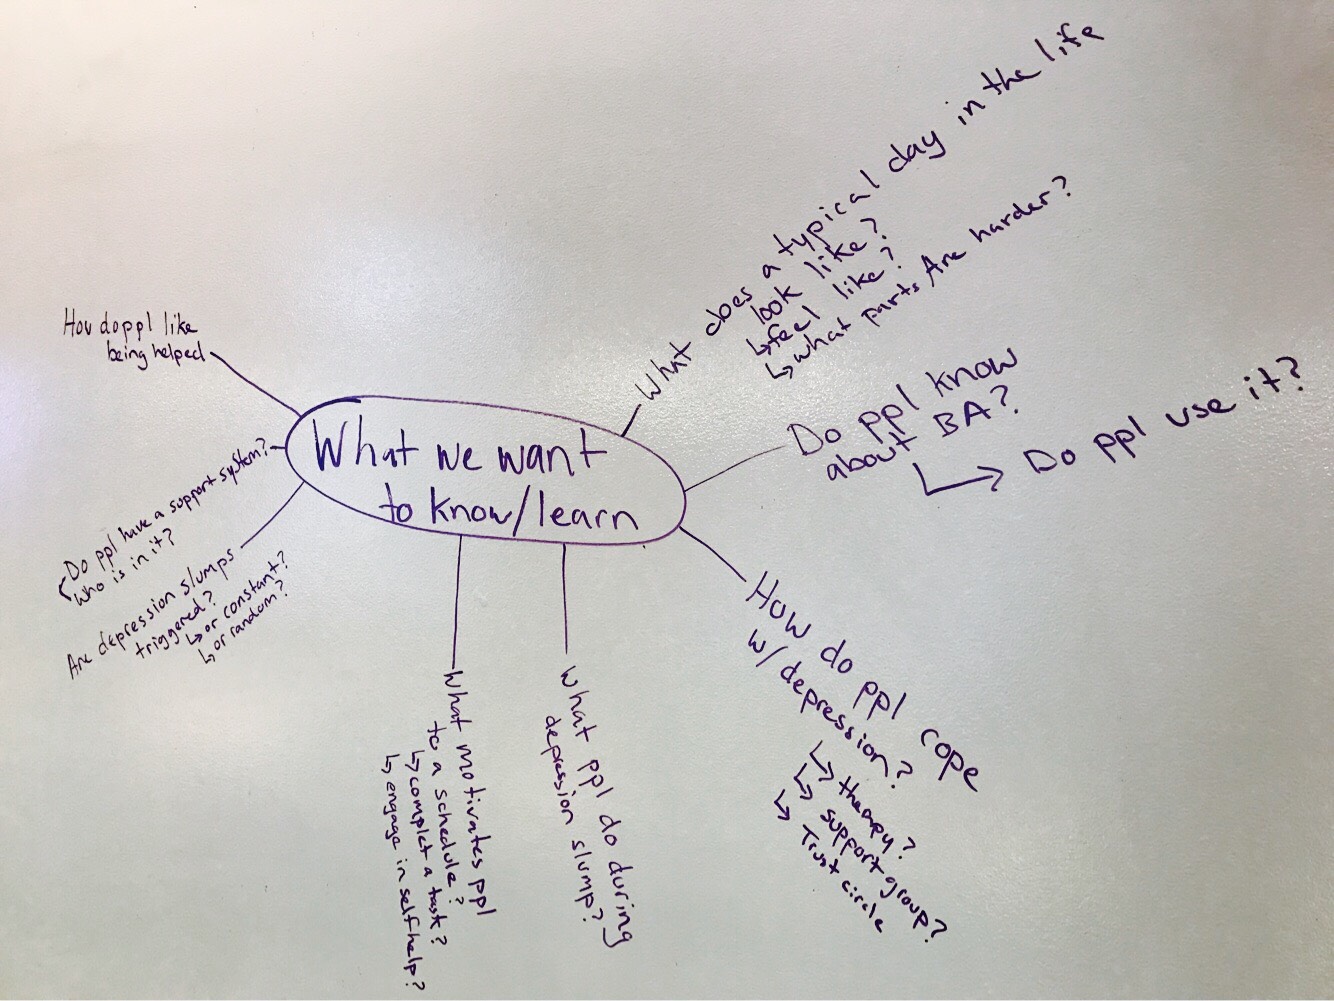 What we want
to know/learn
What does a typical day in the life
look like?
↳ feel like?
↳ what parts Are harder?
Do ppl know
about BA?
→ Do ppl use it?
How do ppl cope
w/ depression?
↳ therapy?
↳ support group?
↳ Trust circle
What ppl do during
depression slump?
What motivates ppl
to a schedule?
↳ complet a task?
↳ engage in self help?
Are depression slumps
triggered?
↳ or constant?
↳ or random?
Do ppl have a support system?
Who is in it?
How do ppl like
being helped